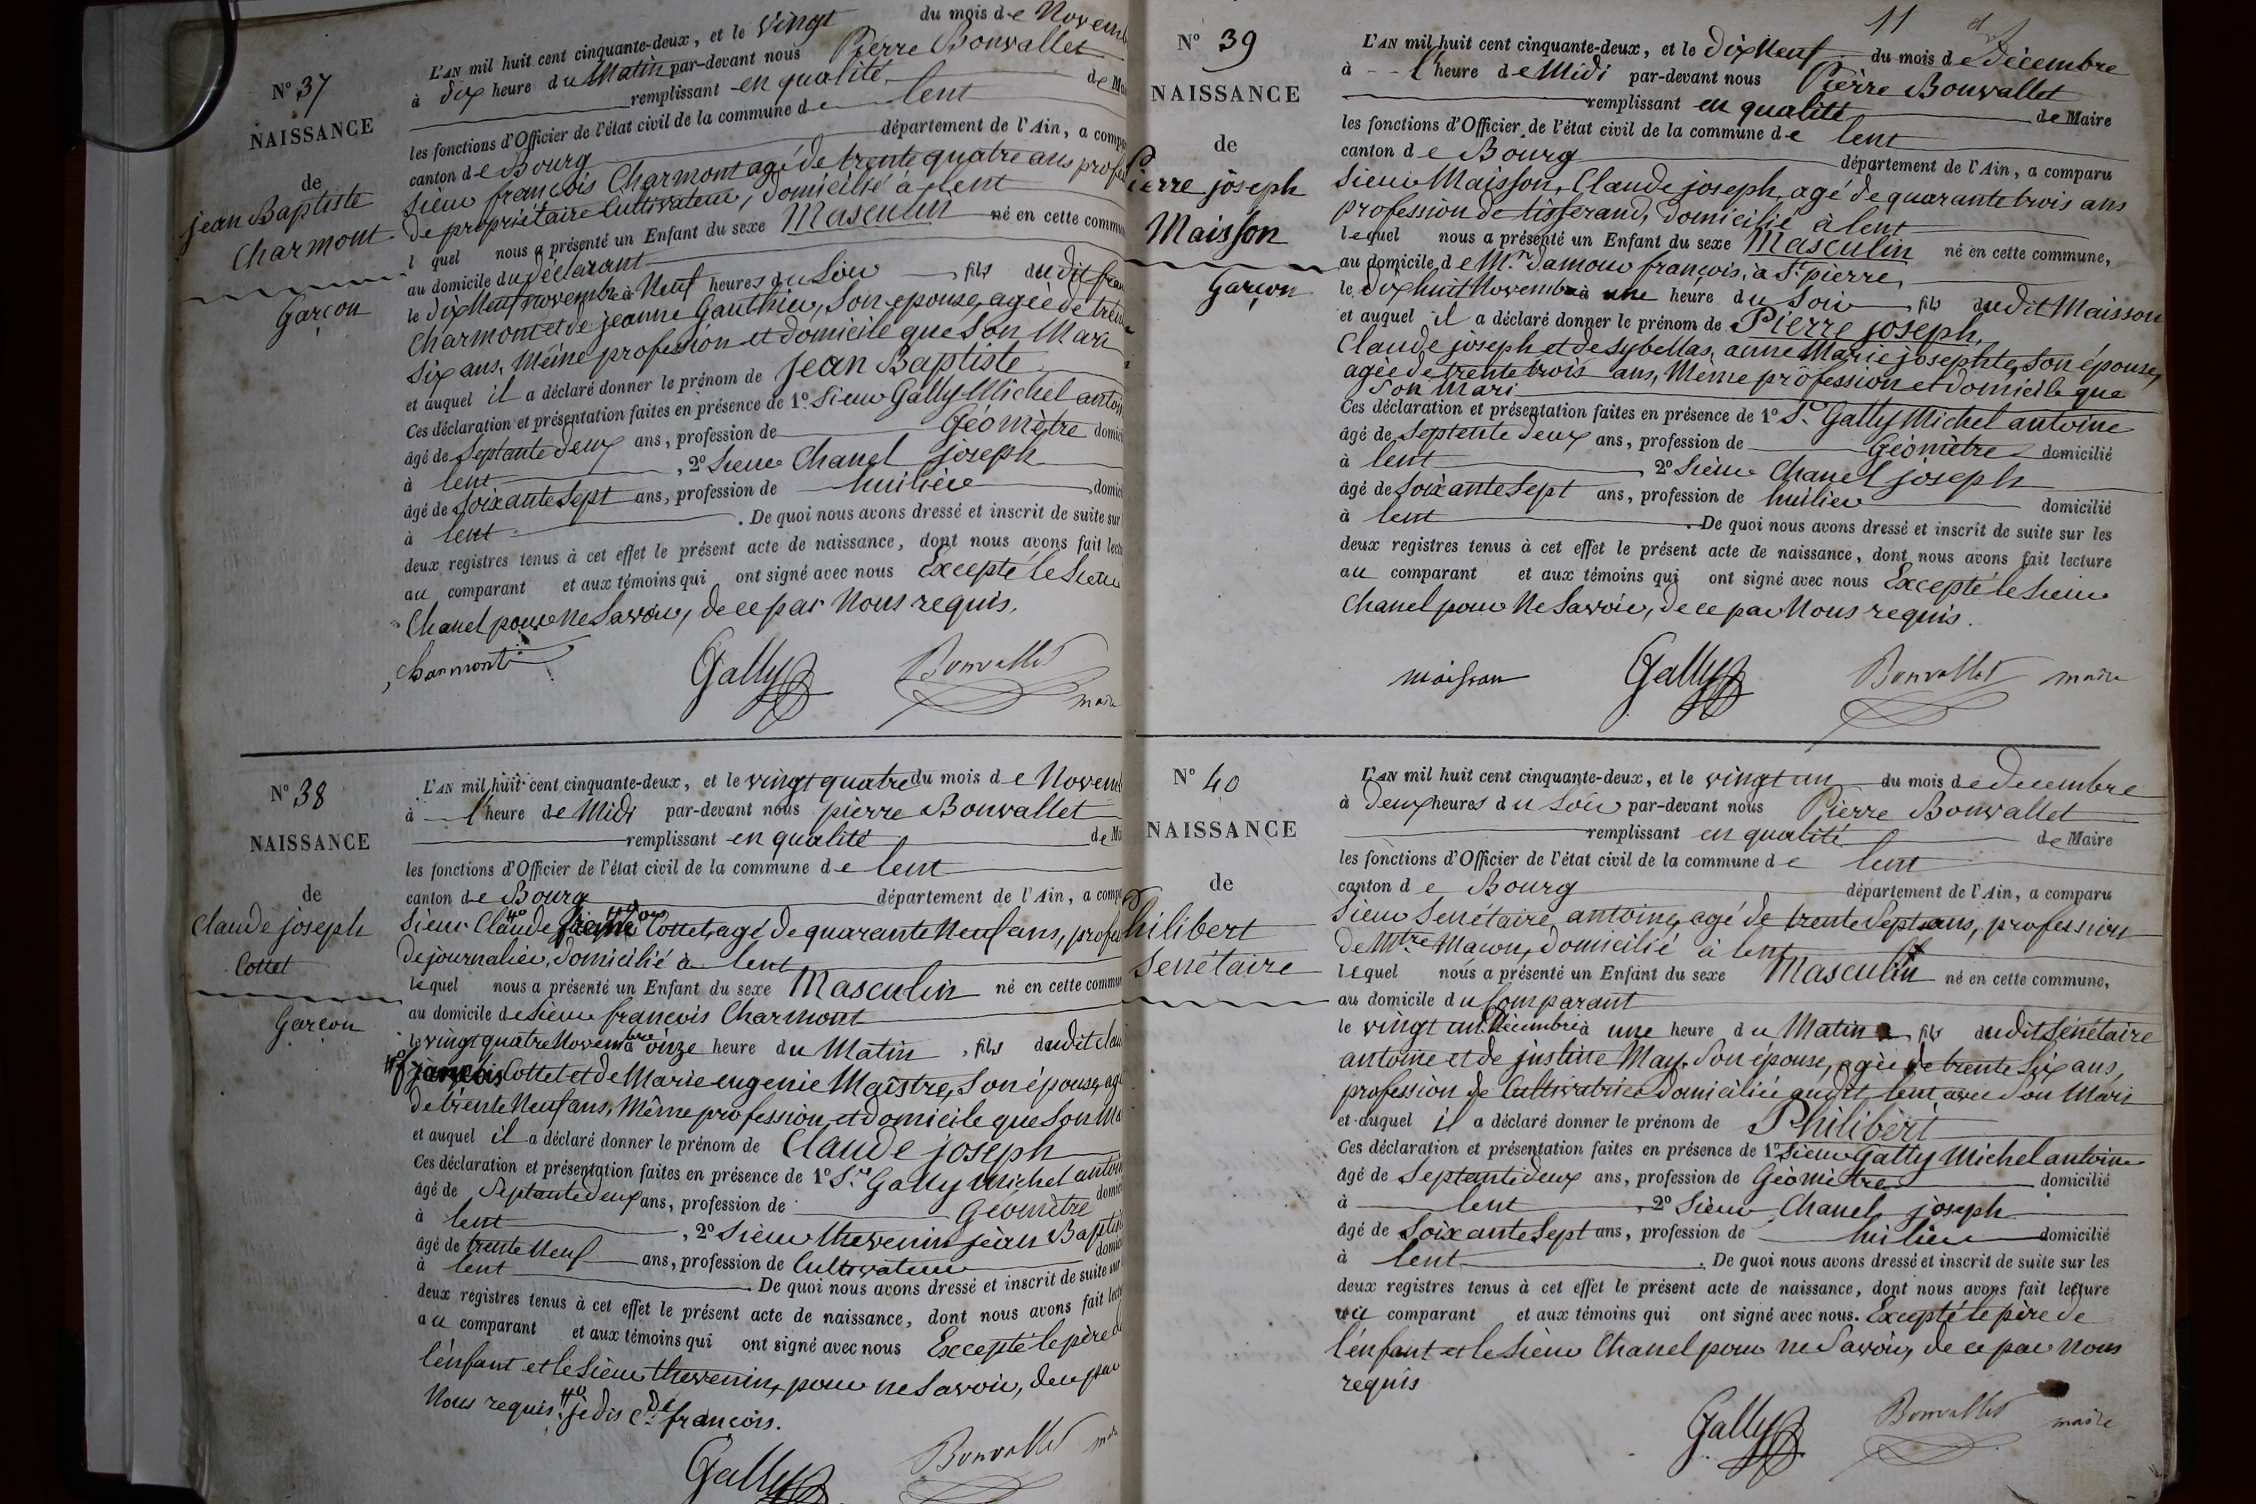 N° 37
NAISSANCE
de
jean Baptiste
Charmont
Garçon
L'AN mil huit cent cinquante-deux, et le vingt du mois de Novemb
à dix heure du Matin par-devant nous Pierre Bonvallet
remplissant en qualité de Ma
les fonctions d'Officier de l'état civil de la commune de lent
canton de Bourg département de l'Ain, a compa
sieur françois Charmont agé de trente quatre ans profes
de propriétaire Cultivateur, domicilié à lent
l quel nous a présenté un Enfant du sexe Masculin né en cette commun
au domicile du déclarant
le dix Neuf novembre à Neuf heures du Soir fils dudit fran
Charmont et de jeanne Gauthier, Son épouse, agée de trente
six ans, Même profession et domicile que Son Mari
et auquel il a déclaré donner le prénom de jean Baptiste
Ces déclaration et présentation faites en présence de 1° Sieur Gally Michel antoi
âgé de Septante deux ans, profession de Géomètre domici
à lent , 2° Sieur Chanel joseph
âgé de Soixante Sept ans, profession de huilier domici
à lent . De quoi nous avons dressé et inscrit de suite sur
deux registres tenus à cet effet le présent acte de naissance, dont nous avons fait lectu
au comparant et aux témoins qui ont signé avec nous Excepté le Sieur
Chanel pour Ne Savoir, de ce par Nous requis.
Charmont Gally Bonvallet maire
N° 38
NAISSANCE
de
Claude joseph
Cottet
Garçon
L'AN mil huit cent cinquante-deux, et le vingt quatre du mois de Novemb
à l'heure de Midi par-devant nous pierre Bonvallet
remplissant en qualité de Ma
les fonctions d'Officier de l'état civil de la commune de lent
canton de Bourg département de l'Ain, a compa
Sieur Claude Cottet, agé de quarante Neuf ans, profes
de journalier, domicilié à lent
lequel nous a présenté un Enfant du sexe Masculin né en cette commun
au domicile de Sieur françois Charmont
le vingt quatre Novembre à onze heure du Matin , fils dudit Clau
françois Cottet et de Marie eugenie Maître, Son épouse, agé
de trente Neuf ans, Même profession et domicile que Son Ma
et auquel il a déclaré donner le prénom de Claude joseph
Ces déclaration et présentation faites en présence de 1° Sr Gally Michel antoin
âgé de Septante deux ans, profession de Géomètre domici
à lent , 2° Sieur thevenin jean Baptis
âgé de trente Neuf ans, profession de Cultivateur domici
à lent . De quoi nous avons dressé et inscrit de suite sur
deux registres tenus à cet effet le présent acte de naissance, dont nous avons fait lect
au comparant et aux témoins qui ont signé avec nous Excepté le père de
l'enfant et le Sieur thevenin, pour ne Savoir, de ce par
Nous requis. je dis Cde françois.
Gally Bonvallet maire
11
N° 39
NAISSANCE
de
Pierre joseph
Maisson
Garçon
L'AN mil huit cent cinquante-deux, et le dix Neuf du mois de décembre
à l'heure de Midi par-devant nous Pierre Bonvallet
remplissant en qualité de Maire
les fonctions d'Officier de l'état civil de la commune de lent
canton de Bourg département de l'Ain, a comparu
Sieur Maisson, Claude joseph, agé de quarante trois ans
profession de tisserand, domicilié à lent
lequel nous a présenté un Enfant du sexe Masculin né en cette commune,
au domicile de Mr damour françois, à St pierre,
le dix huit Novembre à une heure du Soir fils dudit Maisson
et auquel il a déclaré donner le prénom de Pierre joseph,
Claude joseph et de Sybellas, anne Marie josephte, Son épouse,
agée de trente trois ans, Même profession et domicile que
Son Mari
Ces déclaration et présentation faites en présence de 1° Sr Gally Michel antoine
âgé de Septente deux ans, profession de Géomètre domicilié
à lent 2° Sieur Chanel joseph
âgé de Soixante Sept ans, profession de huilier domicilié
à lent . De quoi nous avons dressé et inscrit de suite sur les
deux registres tenus à cet effet le présent acte de naissance, dont nous avons fait lecture
au comparant et aux témoins qui ont signé avec nous Excepté le Sieur
Chanel pour Ne Savoir, de ce par Nous requis.
maisson Gally Bonvallet maire
N° 40
NAISSANCE
de
Philibert
Senétaire
L'AN mil huit cent cinquante-deux, et le vingt un du mois de decembre
à deux heures du Soir par-devant nous Pierre Bonvallet
remplissant en qualité de Maire
les fonctions d'Officier de l'état civil de la commune de lent
canton de Bourg département de l'Ain, a comparu
Sieur Senétaire antoine, agé de trente Sept ans, profession
de Mtre Macon, domicilié à lent
lequel nous a présenté un Enfant du sexe Masculin né en cette commune,
au domicile du Comparant
le vingt un Décembre à une heure du Matin fils dudit Sénétaire
antoine et de justine May. Son épouse, agée de trente Six ans,
profession de Cultivatrice domiciliée audit lent avec Son Mari
et auquel il a déclaré donner le prénom de Philibert
Ces déclaration et présentation faites en présence de 1° Sieur Gally Michel antoine
âgé de Septante deux ans, profession de Géomètre domicilié
à lent , 2° Sieur Chanel joseph
âgé de Soixante Sept ans, profession de huilier domicilié
à lent . De quoi nous avons dressé et inscrit de suite sur les
deux registres tenus à cet effet le présent acte de naissance, dont nous avons fait lecture
au comparant et aux témoins qui ont signé avec nous. Excepté le père de
l'enfant et le Sieur Chanel pour ne Savoir, de ce par Nous
requis
Gally Bonvallet maire